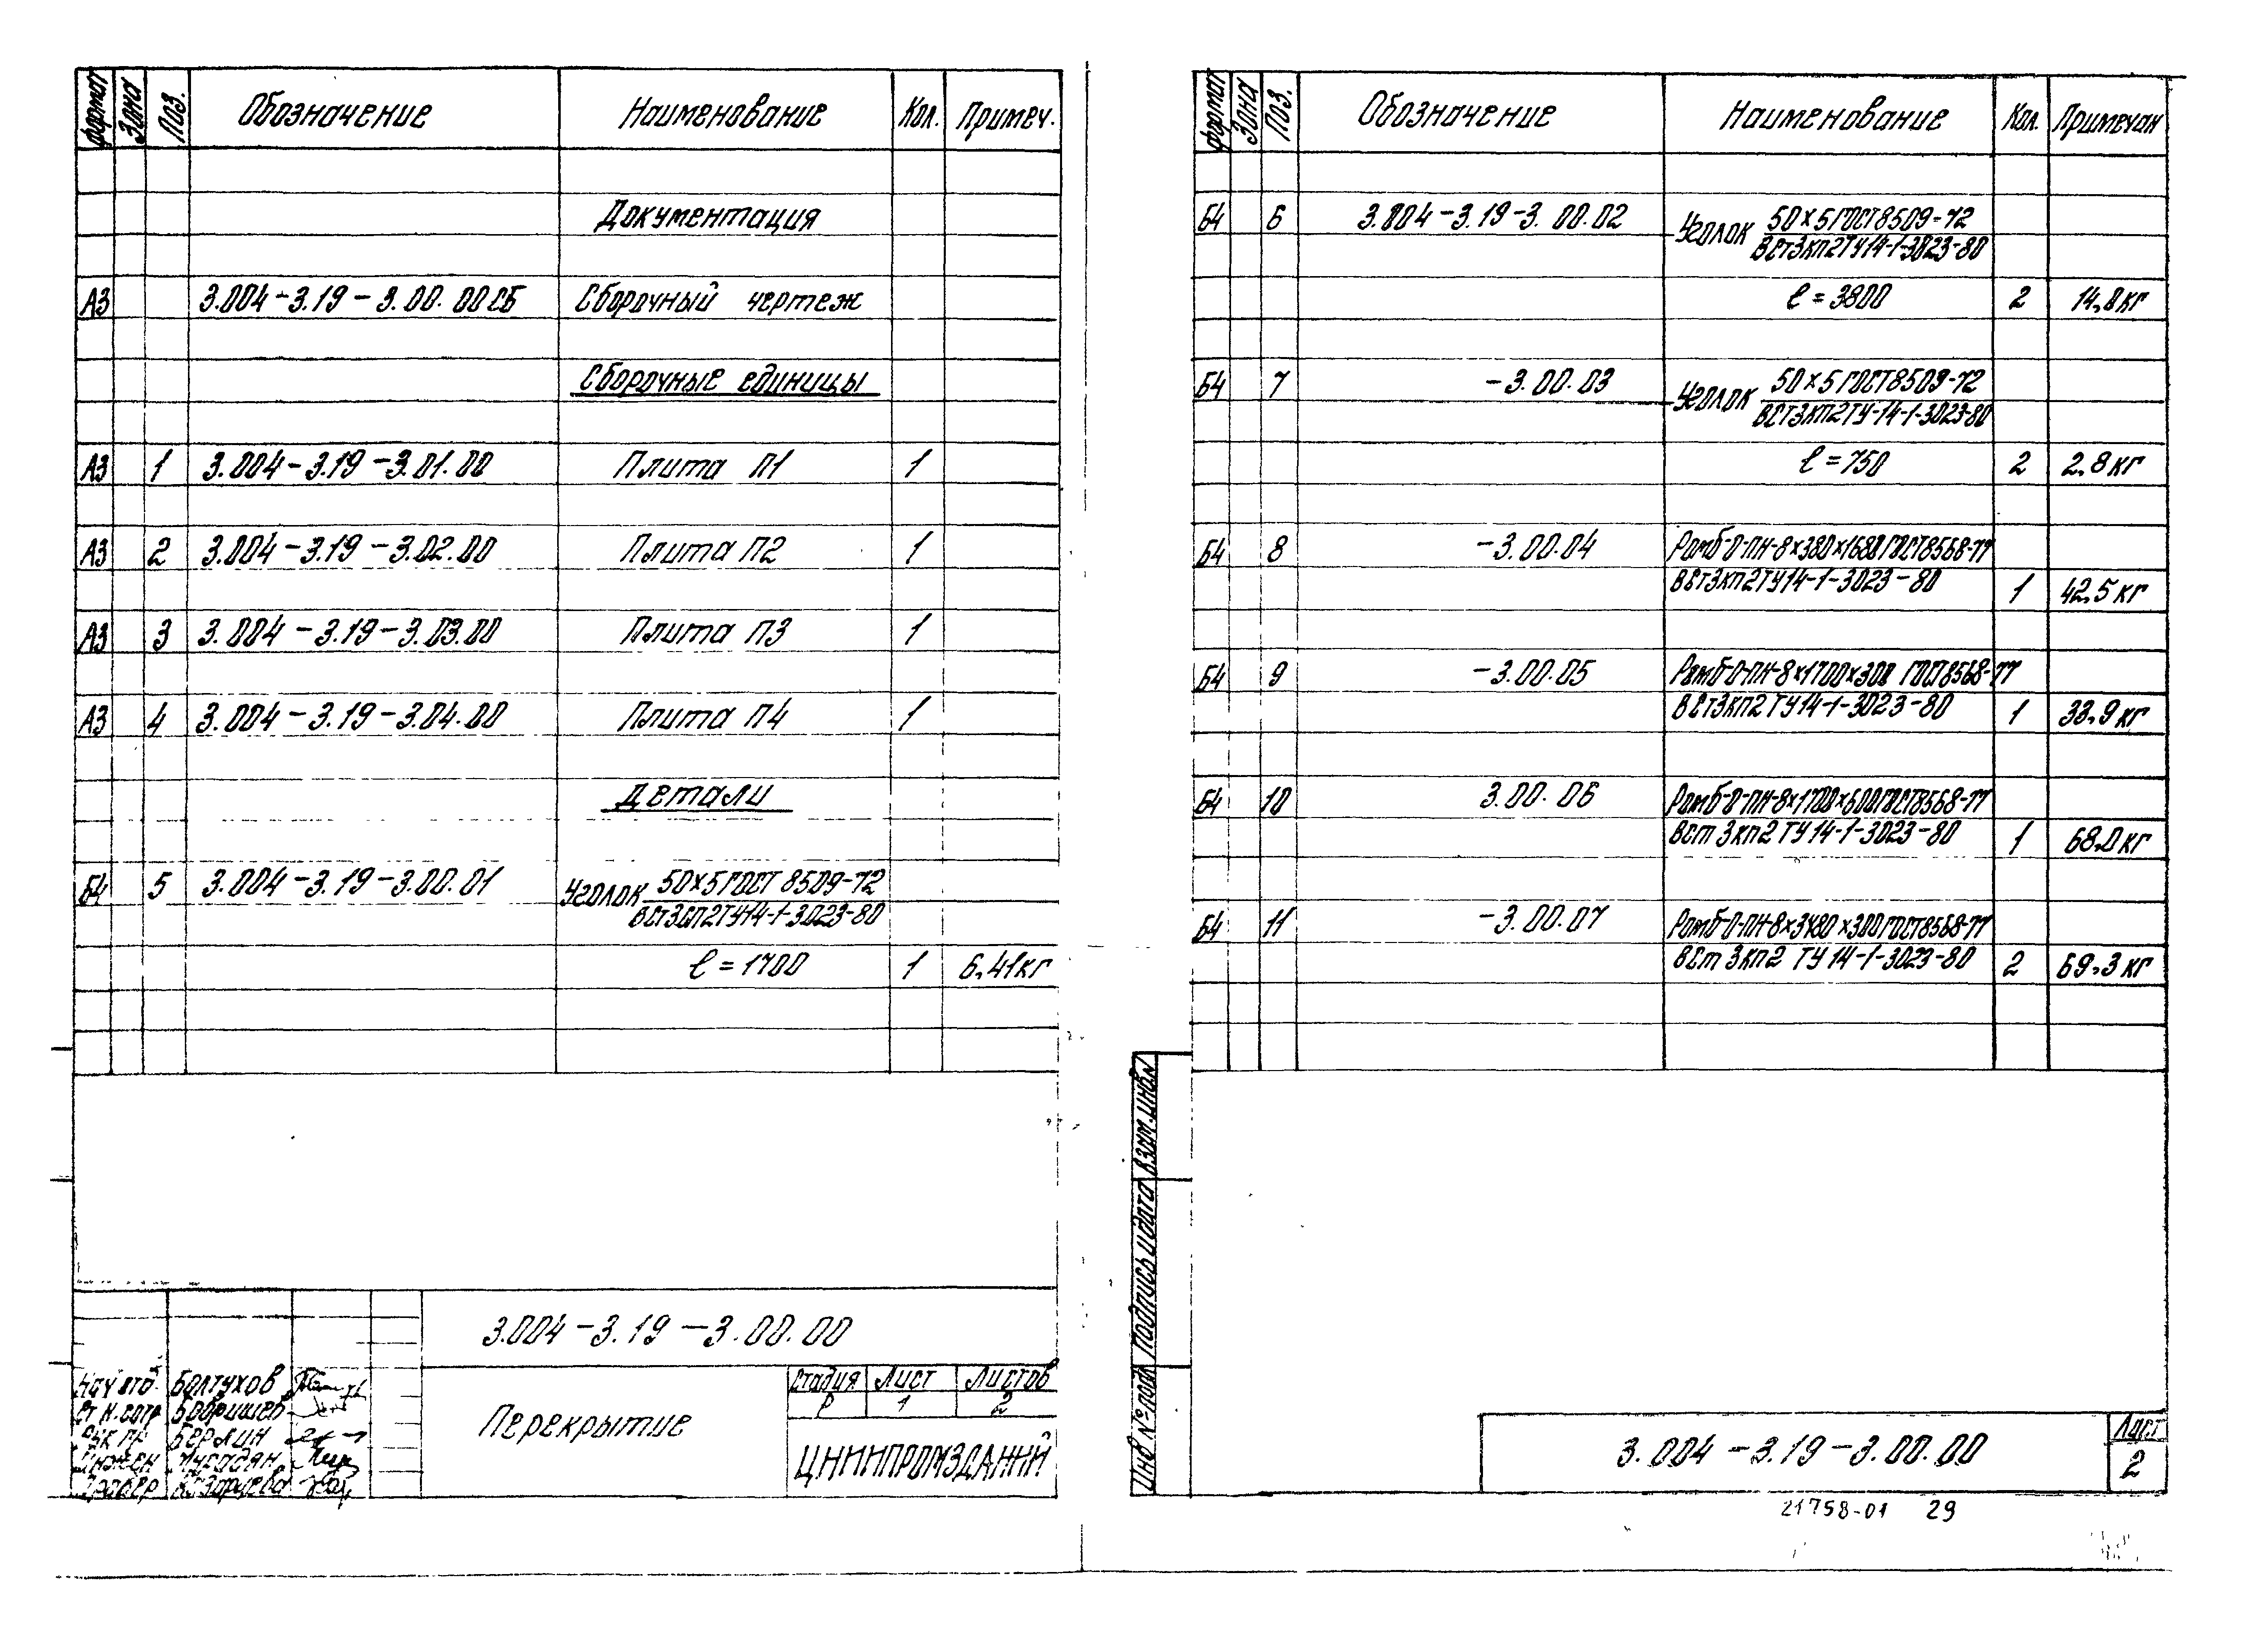 формат Зона Поз. Обозначение Наименование Кол. Примеч.
Документация
А3 3.004-3.19-3.00.00СБ Сборочный чертеж
Сборочные единицы
А3 1 3.004-3.19-3.01.00 Плита П1 1
А3 2 3.004-3.19-3.02.00 Плита П2 1
А3 3 3.004-3.19-3.03.00 Плита П3 1
А3 4 3.004-3.19-3.04.00 Плита П4 1
Детали
Б4 5 3.004-3.19-3.00.01 Уголок 50×5 ГОСТ 8509-72
ВСт3СП2ТУ14-1-3023-80
ℓ=1700 1 6.41кг
3.004-3.19-3.00.00
Нач отд. Болтухов
Ст н.сотр Бобришев
Берлин
Перекрытие
Стадия Лист Листов
Р 1 2
ЦНИИПРОМЗДАНИЙ
формат Зона Поз. Обозначение Наименование Кол. Примечан
Б4 6 3.004-3.19-3.00.02 Уголок 50×5 ГОСТ8509-72
ВСт3кп2ТУ14-1-3023-80
ℓ=3800 2 14,0кг
Б4 7 -3.00.03 Уголок 50×5 ГОСТ8509-72
ВСт3кп2ТУ-14-1-3023-80
ℓ=750 2 2.8кг
Б4 8 -3.00.04 Ромб-О-ПН-8×380×1680 ГОСТ8568-77
ВСт3кп2ТУ14-1-3023-80 1 42.5кг
Б4 9 -3.00.05 Ромб-О-ПН-8×1700×300 ГОСТ8568-77
ВСт3кп2 ТУ14-1-3023-80 1 33.9кг
Б4 10 3.00.06 Ромб-О-ПН-8×1700×600ГОСТ8568-77
Вст 3кп2 ТУ14-1-3023-80 1 68.0кг
Б4 11 -3.00.07 Ромб-О-ПН-8×3480×300ГОСТ8568-77
ВСт 3кп2 ТУ14-1-3023-80 2 69.3кг
Инв №подл Подпись и дата Взам.инв№
3.004-3.19-3.00.00
Лист
2
21758-01 29